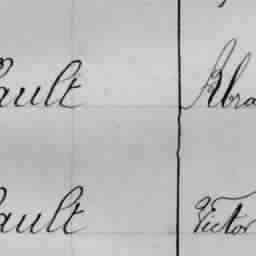 ault Abra
ault Victor